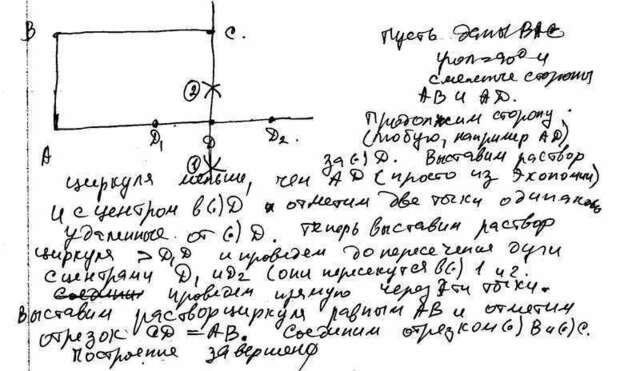 B
C.
Пусть даны ВАС
угол=90° и
смежные стороны
АВ и АD.
2
Продолжим сторону
(любую, например АD)
A
D₁
D
D₂.
1
за (·) D. Выставим раствор
циркуля меньше, чем АD (просто из экономии)
и с центром в (·) D отметим две точки одинаково
удаленные от (·) D. Теперь выставим раствор
циркуля > D₁D и проведем до пересечения дуги
с центрами D₁ и D₂ (они пересекутся в (·) 1 и 2.
проведем прямую через эти точки.
Выставим раствор циркуля равным АВ и отметим
отрезок CD = АВ. Соединим отрезком (·) В и (·) С.
Построение завершено